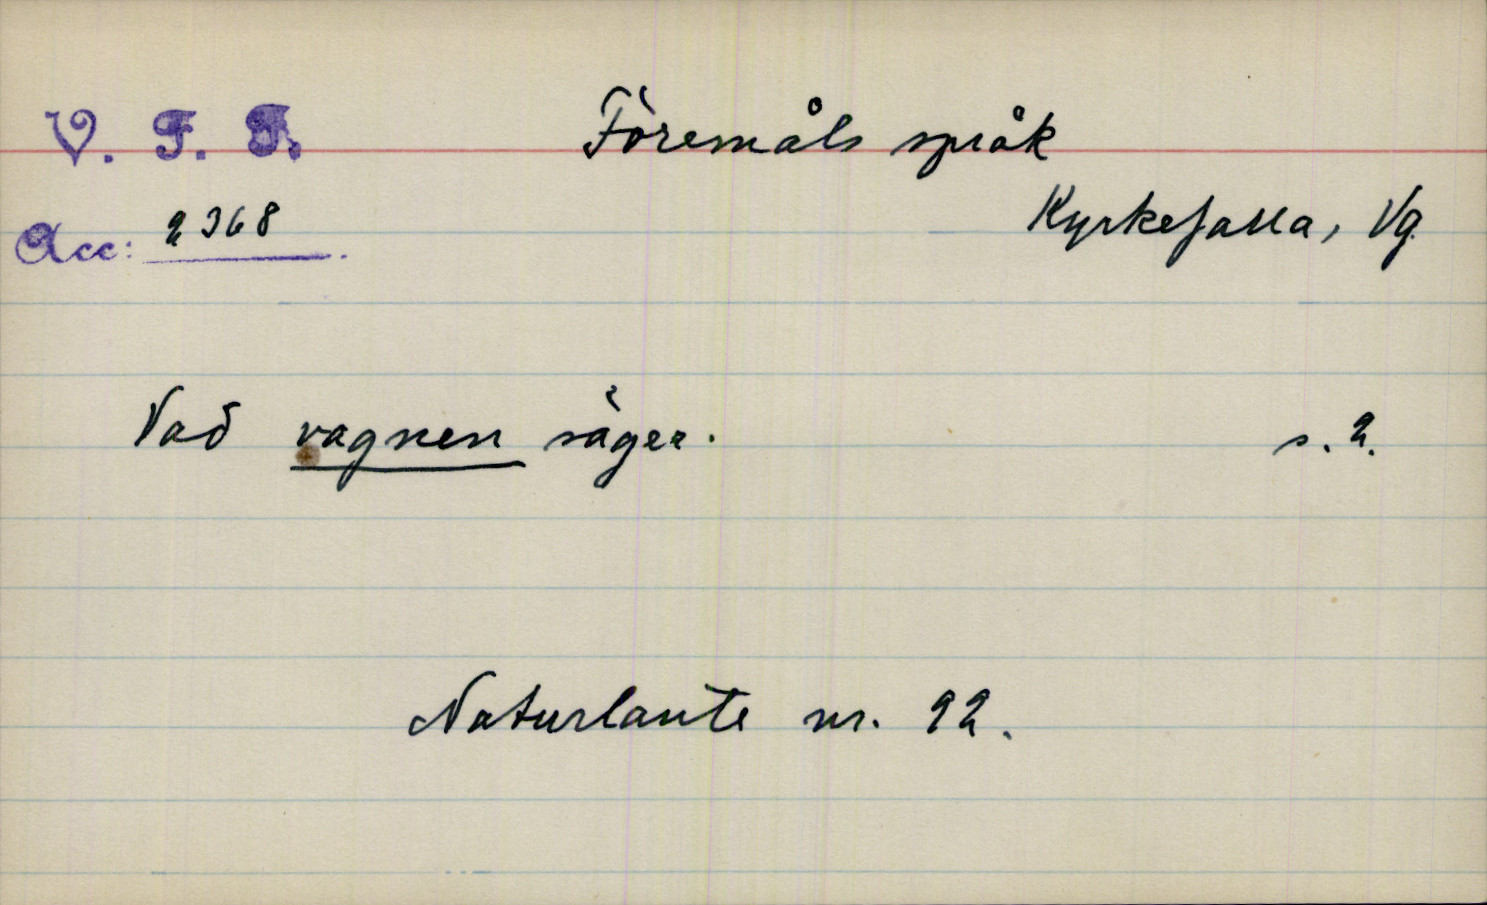 V. F. F. Föremåls språk
Acc: 2368. Kyrkefalla, Vg.
Vad vagnen säger. s. 2.
Naturlaute nr. 92.